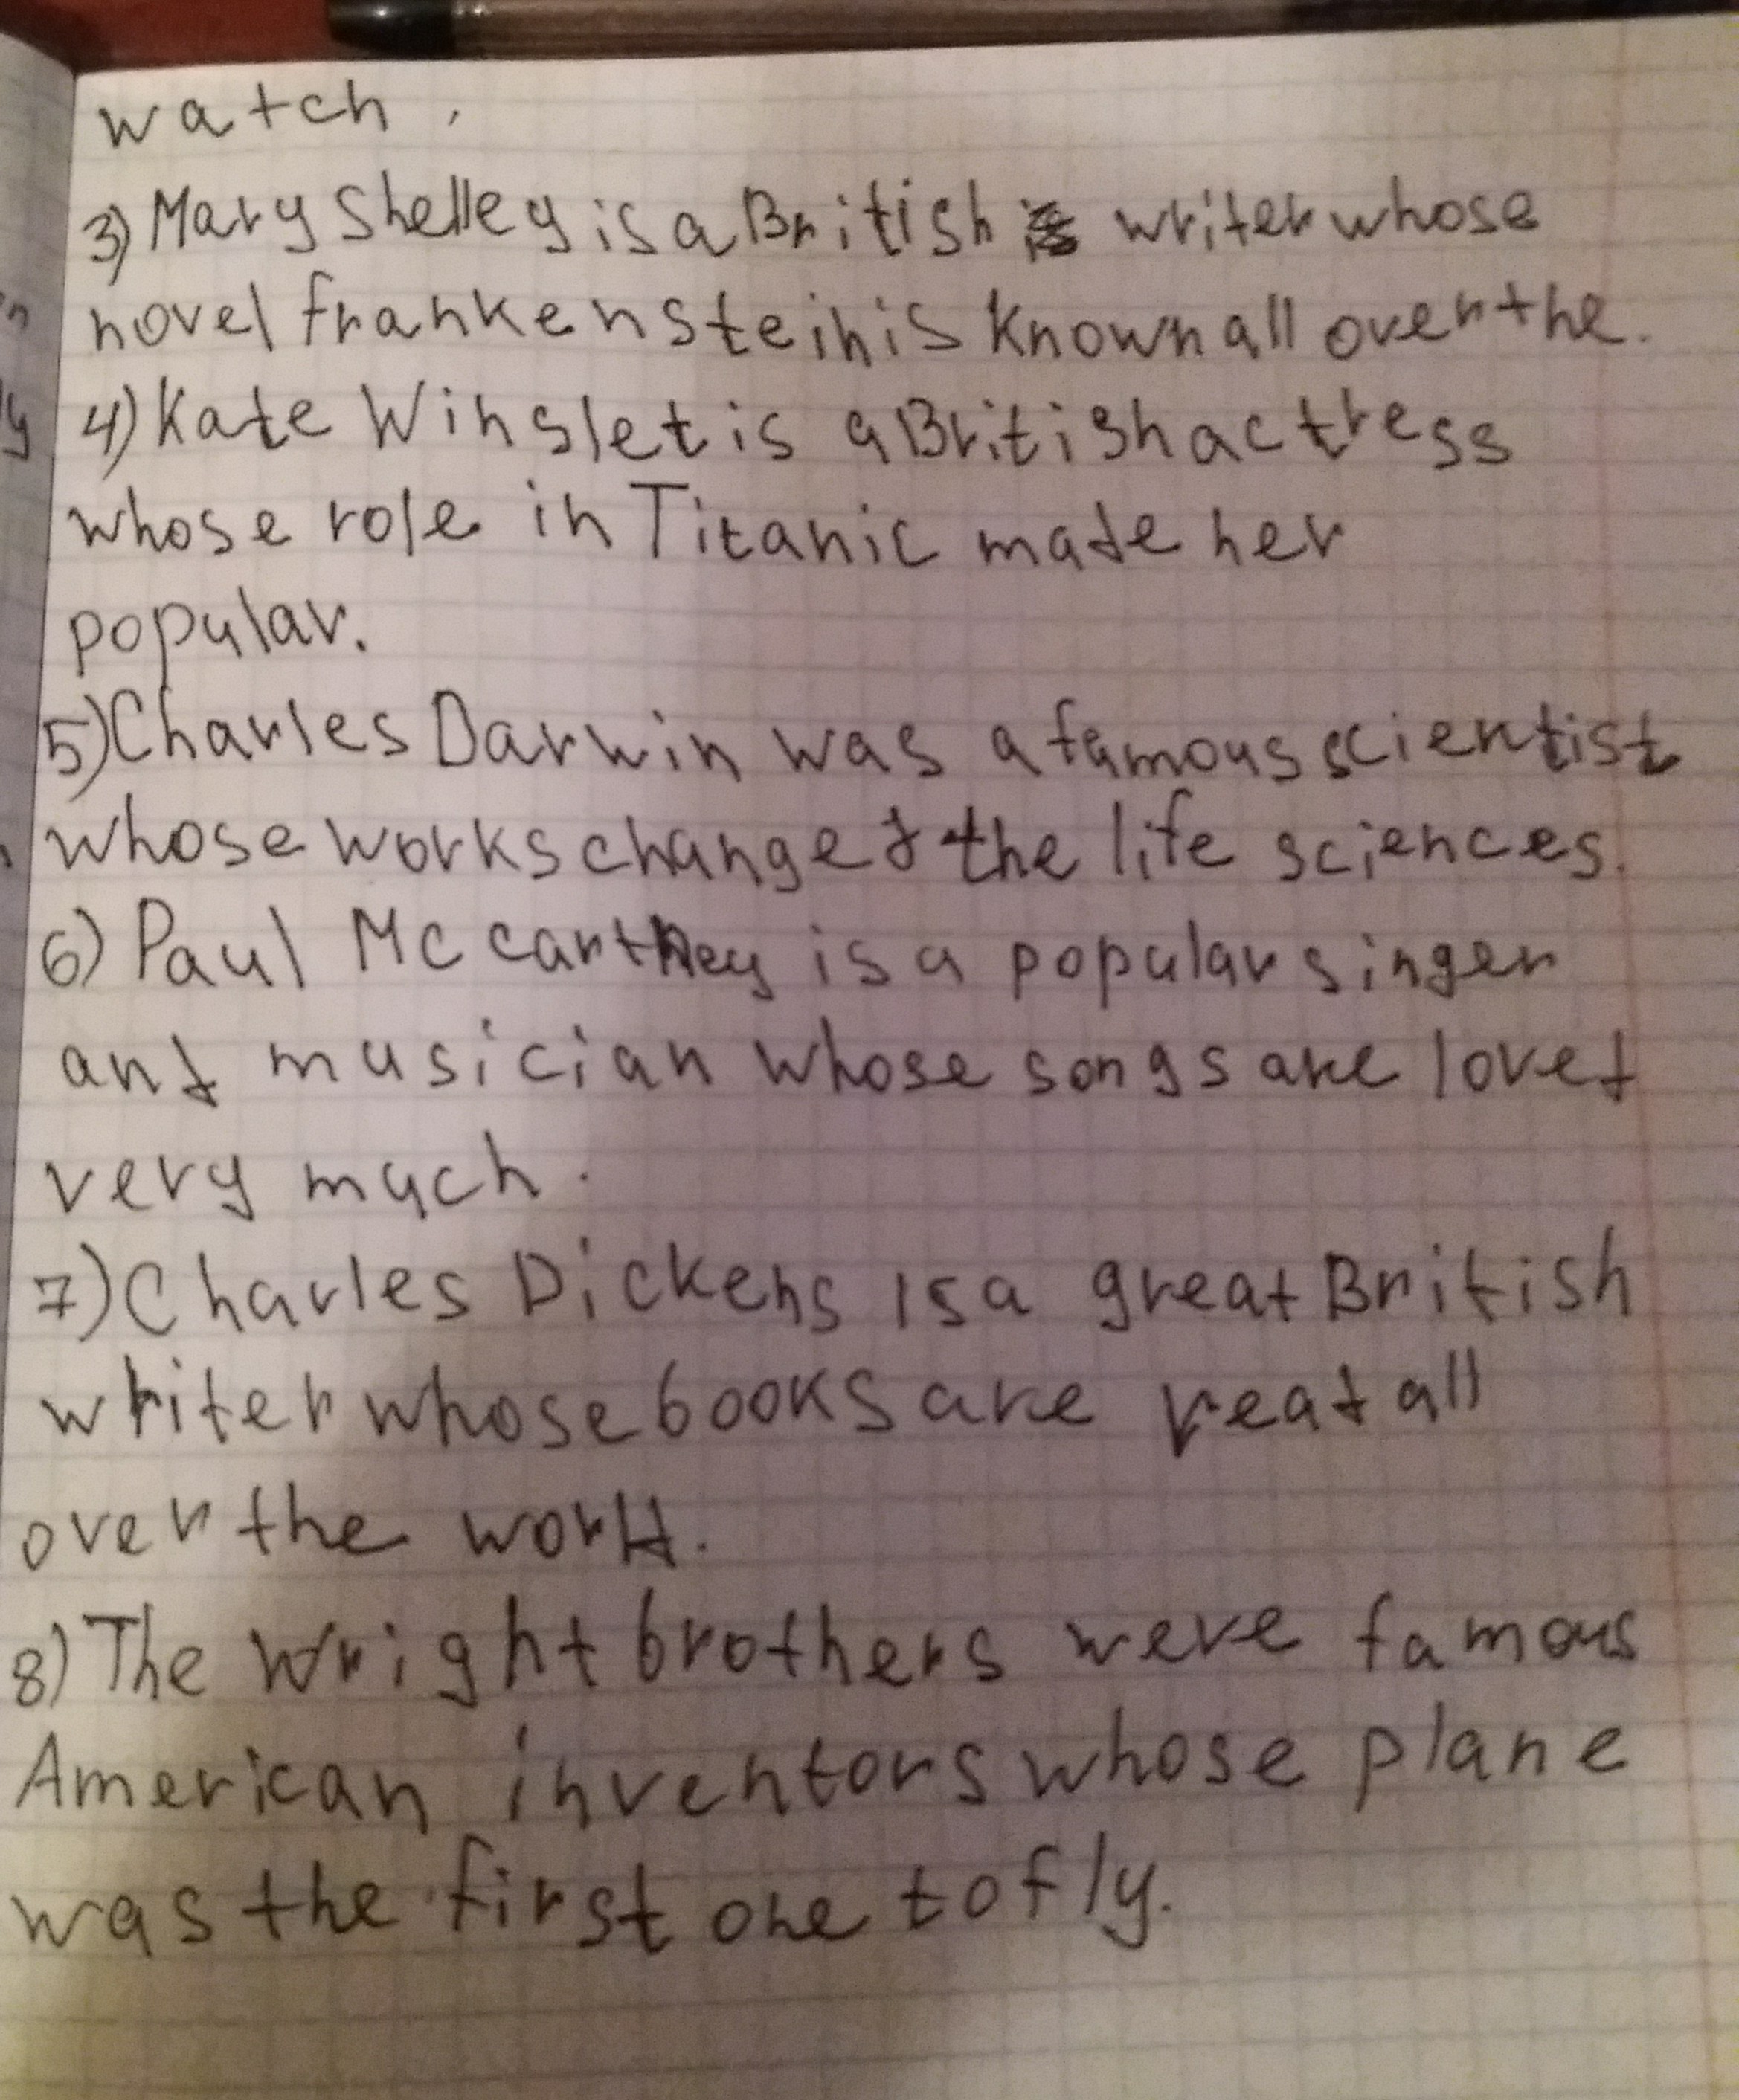 watch.
3) Mary Shelley is a British writer whose
novel frankenstein is known all over the.
4) Kate Winslet is a British actress
whose role in Titanic made her
popular.
5) Charles Darwin was a famous scientist
whose works changed the life sciences.
6) Paul Mccartney is a popular singer
and musician whose songs are loved
very much.
7) Charles Dickens is a great British
writer whose books are read all
over the world.
8) The Wright brothers were famous
American inventors whose plane
was the first one to fly.